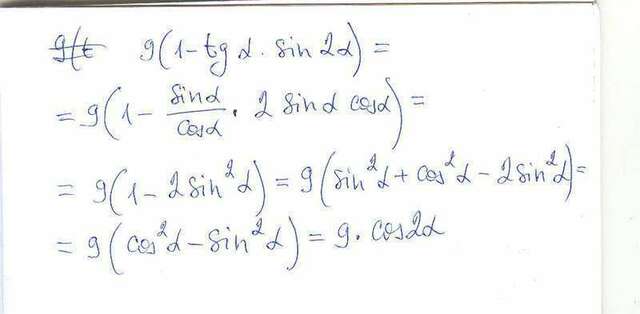 9(1-tg α · sin 2α) =
= 9(1 - sinα/cosα · 2 sinα cosα) =
= 9(1-2sin²α) = 9(sin²α + cos²α - 2sin²α) =
= 9(cos²α - sin²α) = 9 · cos2α